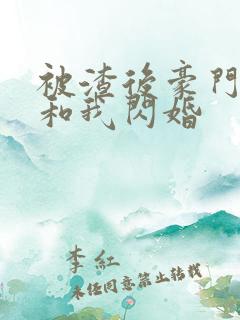 被渣後豪門
和我閃婚
李紅
未經同意禁止轉載